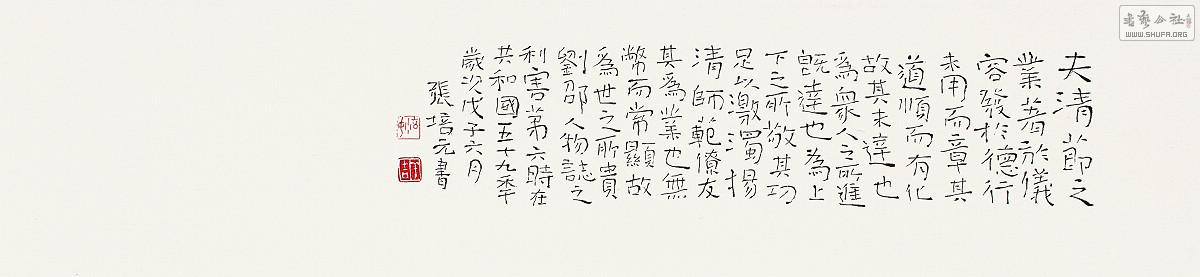 夫清節之
業著於儀
容發於德行
未用而章其
道順而有化
故其未達也
爲衆人之所進
既達也為上
下之所敬其功
足以激濁揚
清師範僚友
其爲業也無
幣而常顯故
爲世之所貴
劉邵人物誌之
利害第六時在
共和國五十九秊
歲次戊子六月
張培元書
WWW.SHUFA.ORG